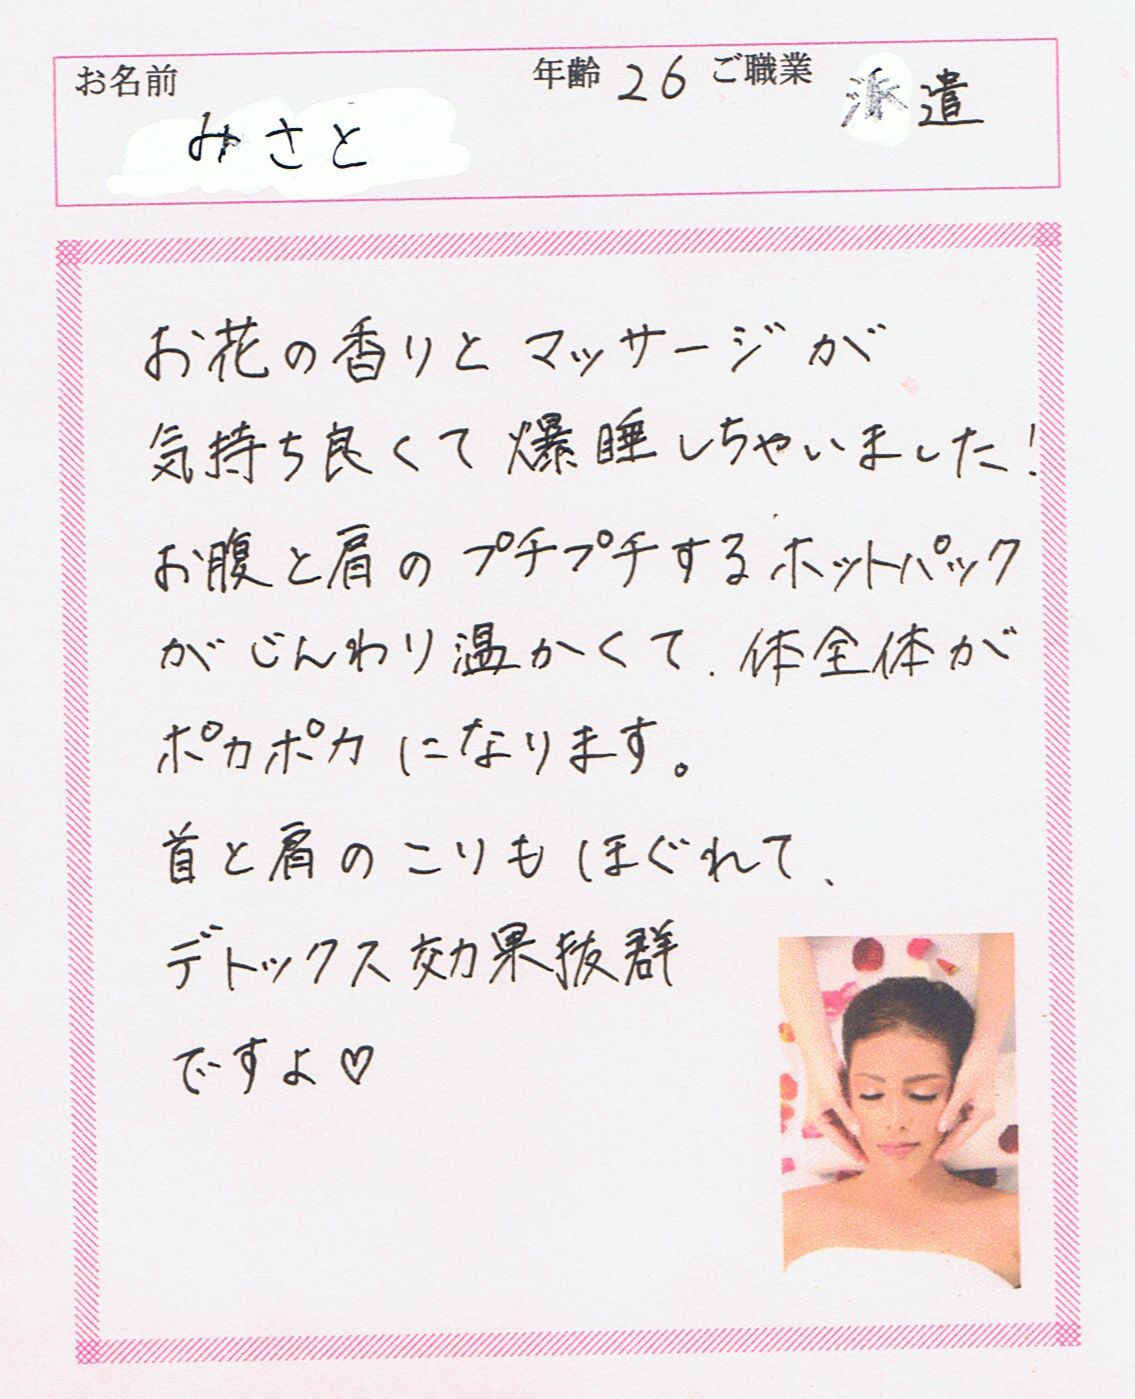 お名前 年齢 26 ご職業 派遣
みさと
お花の香りとマッサージが
気持ち良くて爆睡しちゃいました!
お腹と肩のプチプチするホットパック
がじんわり温かくて、体全体が
ポカポカになります。
首と肩のこりもほぐれて、
デトックス効果抜群
ですよ♡